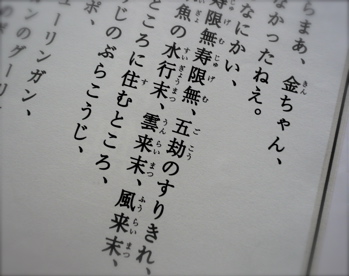 らまあ、金ちゃん、
なかったねえ。
なにかい、
寿限無寿限無、五劫のすりきれ、
魚の水行末、雲来末、風来末、
ところに住むところ、
うじのぶらこうじ、
ポ、
ューリンガン、
ンのグーリン